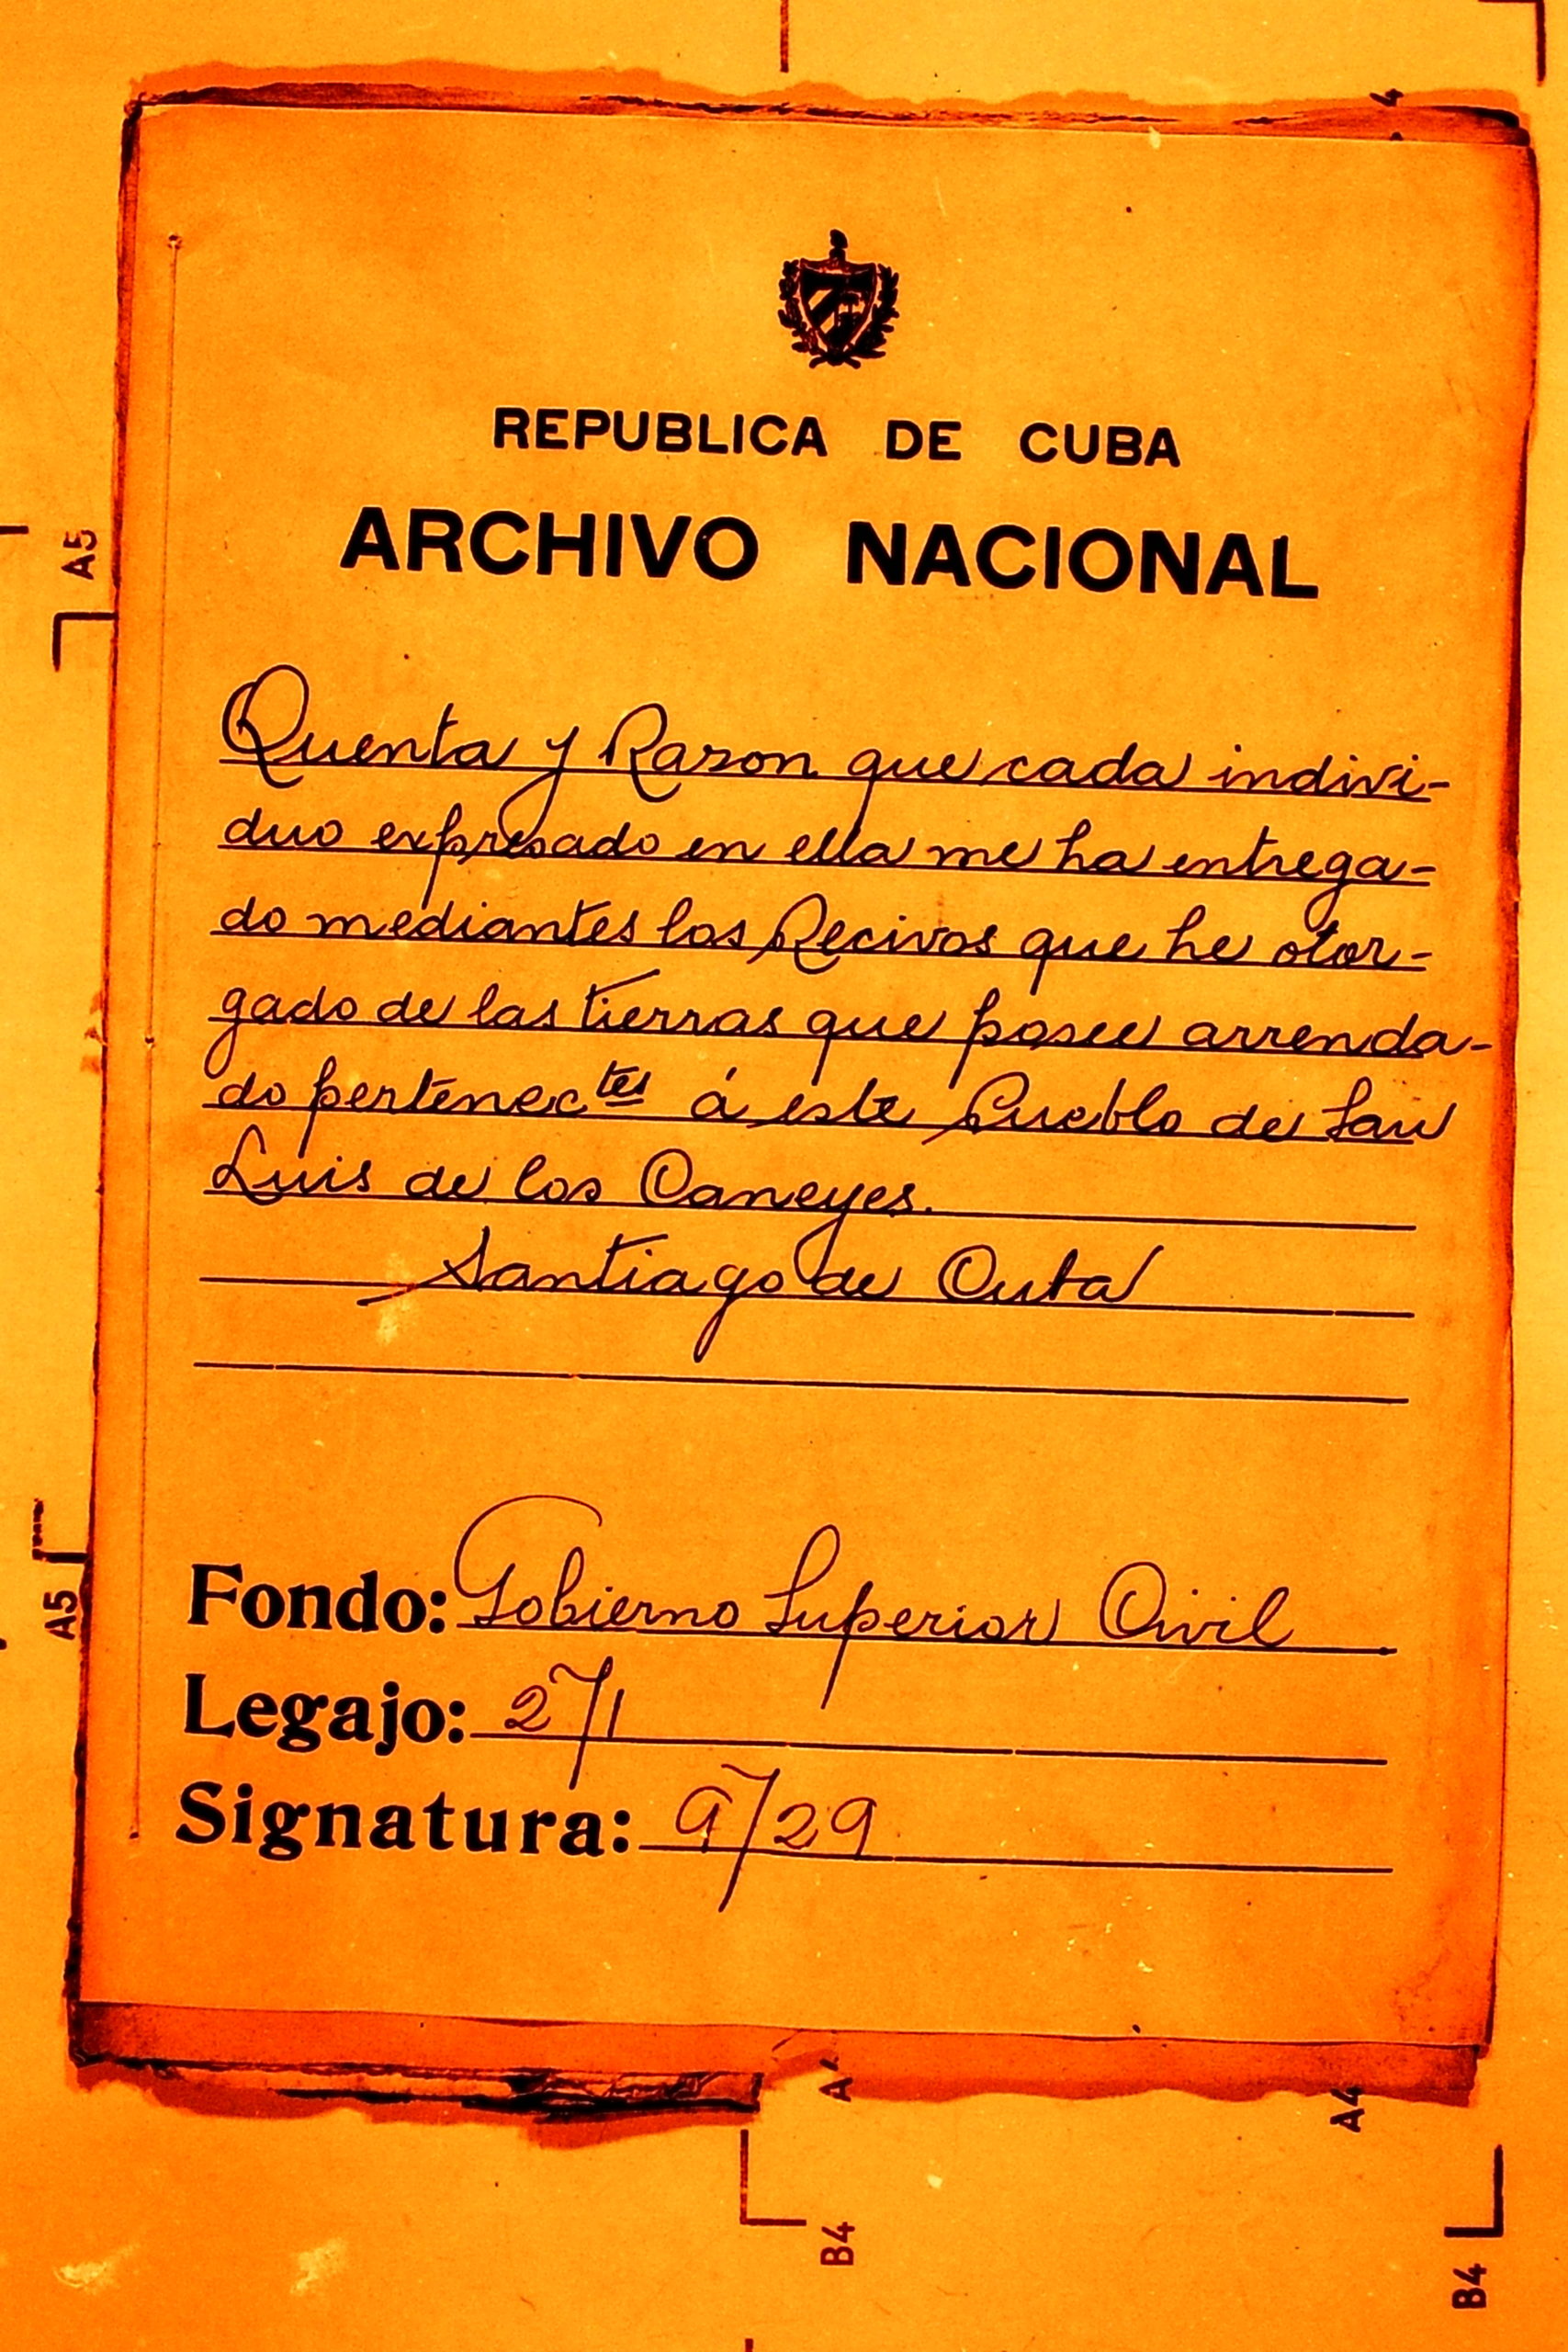 REPUBLICA DE CUBA
ARCHIVO NACIONAL
Quenta y Razon que cada indivi-
duo expresado en ella me ha entrega-
do mediantes los Recivos que he otor-
gado de las tierras que posee arrenda-
do pertenectes á este Pueblo de San
Luis de los Caneyes.
Santiago de Cuba
Fondo: Gobierno Superior Civil
Legajo: 271
Signatura: 9729
A5
A5
A4
A4
B4
B4